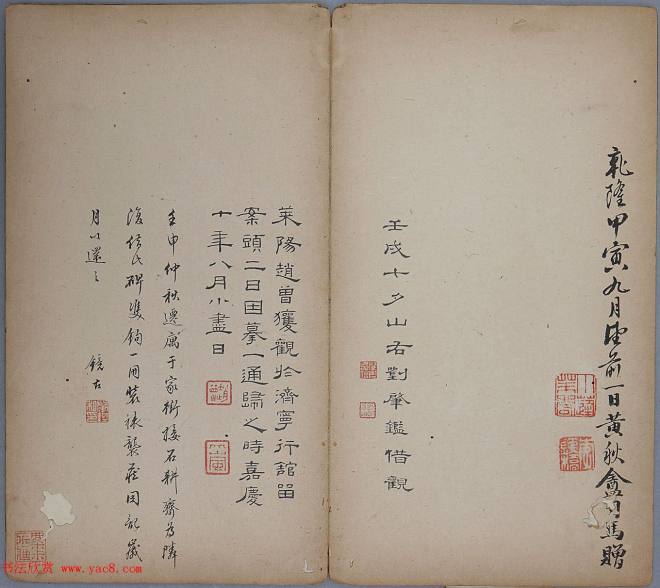 乾隆甲寅九月望前一日黃秋盦司馬贈
壬戌十夕山右劉肇鑑借觀
萊陽趙曾獲觀於濟寧行舘留
案頭二日因摹一通歸之時嘉慶
十年八月小盡日
壬申仲秋遷寓于家衖接石耕齋為隣
復借氏碑雙鉤一冊裝裱襲藏因記歲
月以還之
鏡古
书法欣赏 www.yac8.com